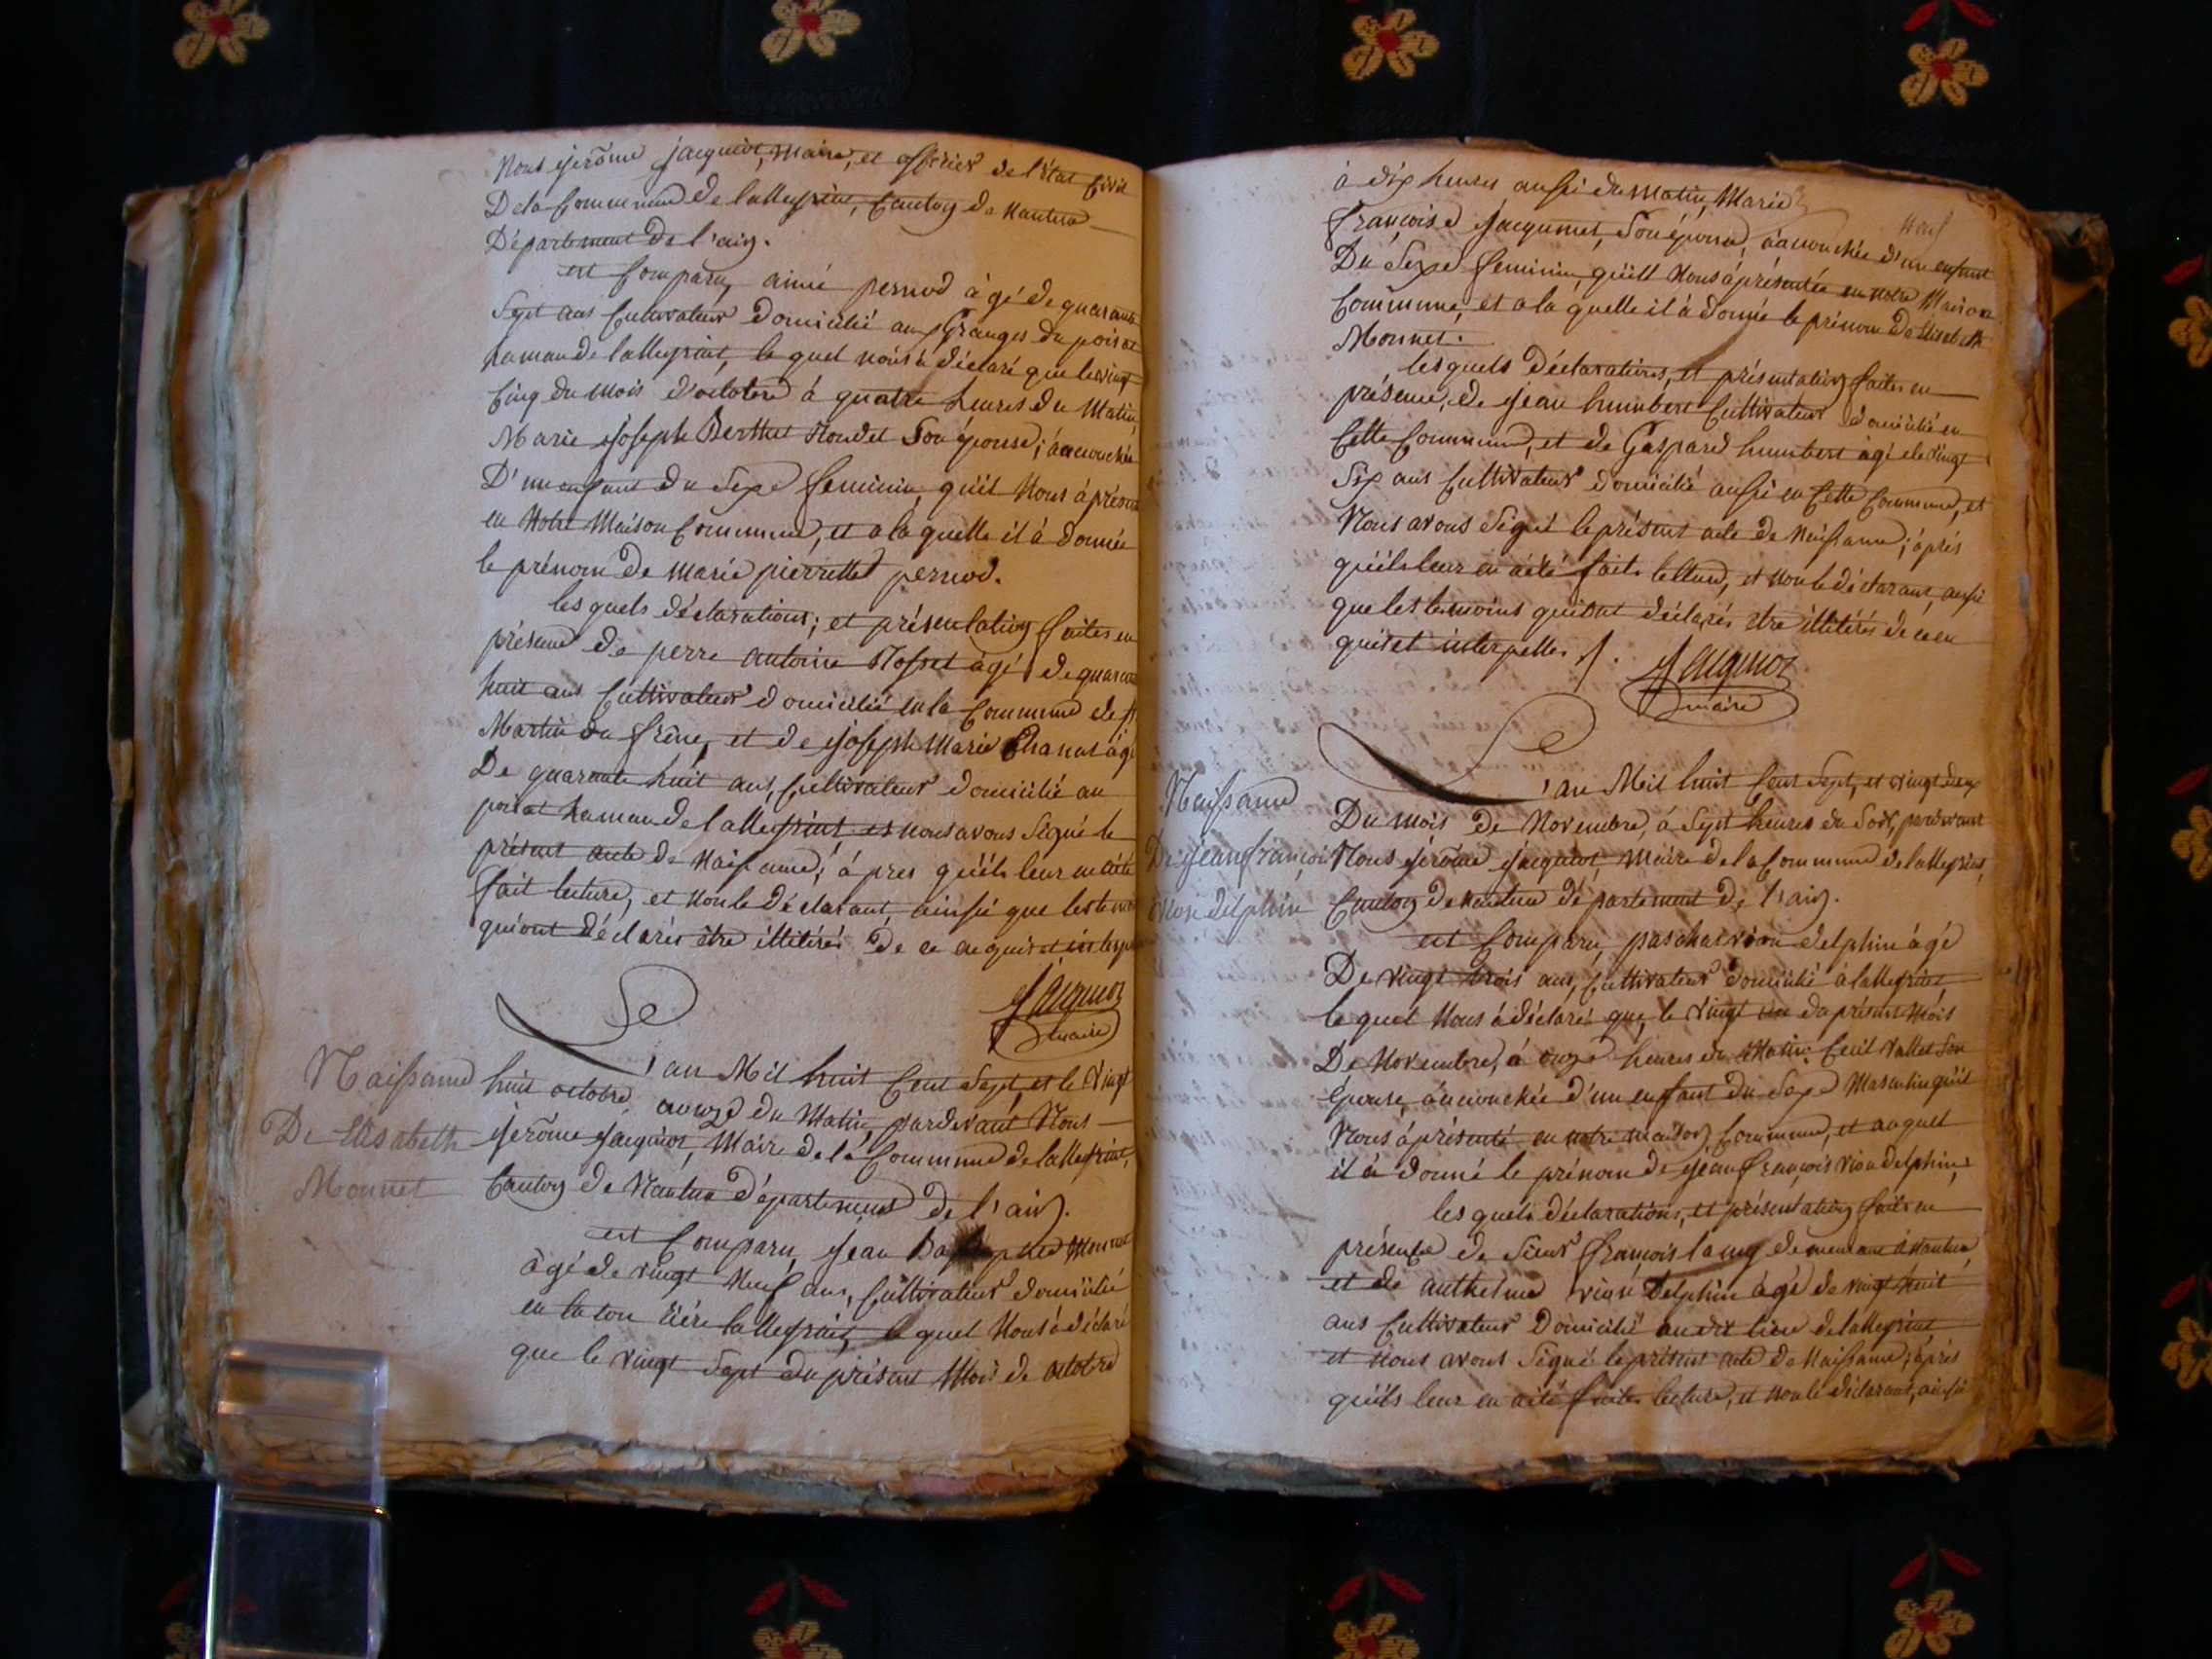 Nous jerôme jacquiot, Maire, et officier de l'état Civil
De la Commune de lalleyriat, Canton de Nantua
Département De l'ain.
est Comparu, aimé pernod àgé de quarante
Sept ans Cultivateur Domicilié aux Granges du poisat
hamau de lalleyriat, le quel nous à déclaré que le vingt
Cinq du mois d'octobre à quatre heures du Matin,
Marie joseph Berthet Son épouse; à accouchée
D'un enfant du Sexe feminin, qu'il Nous à présenté
en Notre Maison Commune, et a la quelle il à donnée
le prénom De Marie pierrette pernod.
les quels déclarations; et présentation faites en
présence de perre antoine àgé de quarante
huit ans Cultivateur domicilié en la Commune de st
Martin du frêne, et de joseph Marie Chanat àgé
De quarante huit ans, Cultivateur domicilié au
poisat hamau de lalleyriat, et nous avons Signé le
présent acte de Naissance; à pres qu'ils leur en à été
fait lecture, et Non le Déclarant, ainsi que les temoins
qui ont Déclarés être illitérés De ce en quis et interpellé
Jacquiot
maire
L'an Mil huit Cent Sept, et le Vingt
Naissance
huit octobre, a onze du Matin pardevant Nous
De Elisabeth
jerôme jacquiot, Maire de la Commune de lalleyriat,
Monnet
Canton de Nantua Département De l'ain.
est Comparu, jean Monnet
àgé de vingt Neuf ans, Cultivateur domicilié
lalleyriat, le quel Nous à déclaré
que le vingt Sept du présent Mois de octobre
Neuf
à dix heures aussi du Matin, Marie
françoise jacquinet, Son épouse, à accouchée d'un enfant
Du Sexe feminin, qu'ill Nous à présentée en Notre Maison
Commune, et a la quelle il à donné le prénom De Elisabeth
Monnet.
les quels Déclarations, et présentation faites en
présence, de jean humbert Cultivateur domicilié en
Cette Commune, et de Gaspard humbert àgé de vingt
Six ans Cultivateur domicilié aussi en Cette Commune, et
Nous avons Signé le présent acte de Naissance; àprés
qu'ils leur en à été faite lecture, et Non le déclarant, aussi
que les temoins qui ont déclarés être illitérés de ce en
quis et interpellés.
Jacquiot
maire
L'an Mil huit Cent Sept, et vingt deux
Naissance
Du mois de Novembre, à Sept heures du Soir, pardevant
De jean françois
Nous jérôme jacquiot, Maire de la Commune de lalleyriat,
vion delphin
Canton de Nantua département De l'ain.
est Comparu, paschal vion delphin àgé
De vingt trois ans, Cultivateur domicilié a lalleyriat
le quel Nous à déclaré que, le vingt un du présent Mois
De Novembre, à onze heures du Matin, Vallet Son
Épouse, à accouchée d'un enfant du Sexe Masculin qu'il
Nous à présenté en notre maison Commune, et auquel
il à donné le prénom de jean françois vion delphin,
les quels déclarations, et présentation faites en
présence de Sieur françois demeurant à Nantua
et de anthelme vion Delphin àgé de vingt huit
ans Cultivateur Domicilié au dit lieu de lalleyriat
et Nous avons Signé le présent acte de Naissance; àprés
qu'ils leur en à été faite lecture, et Non le déclarant, ainsi